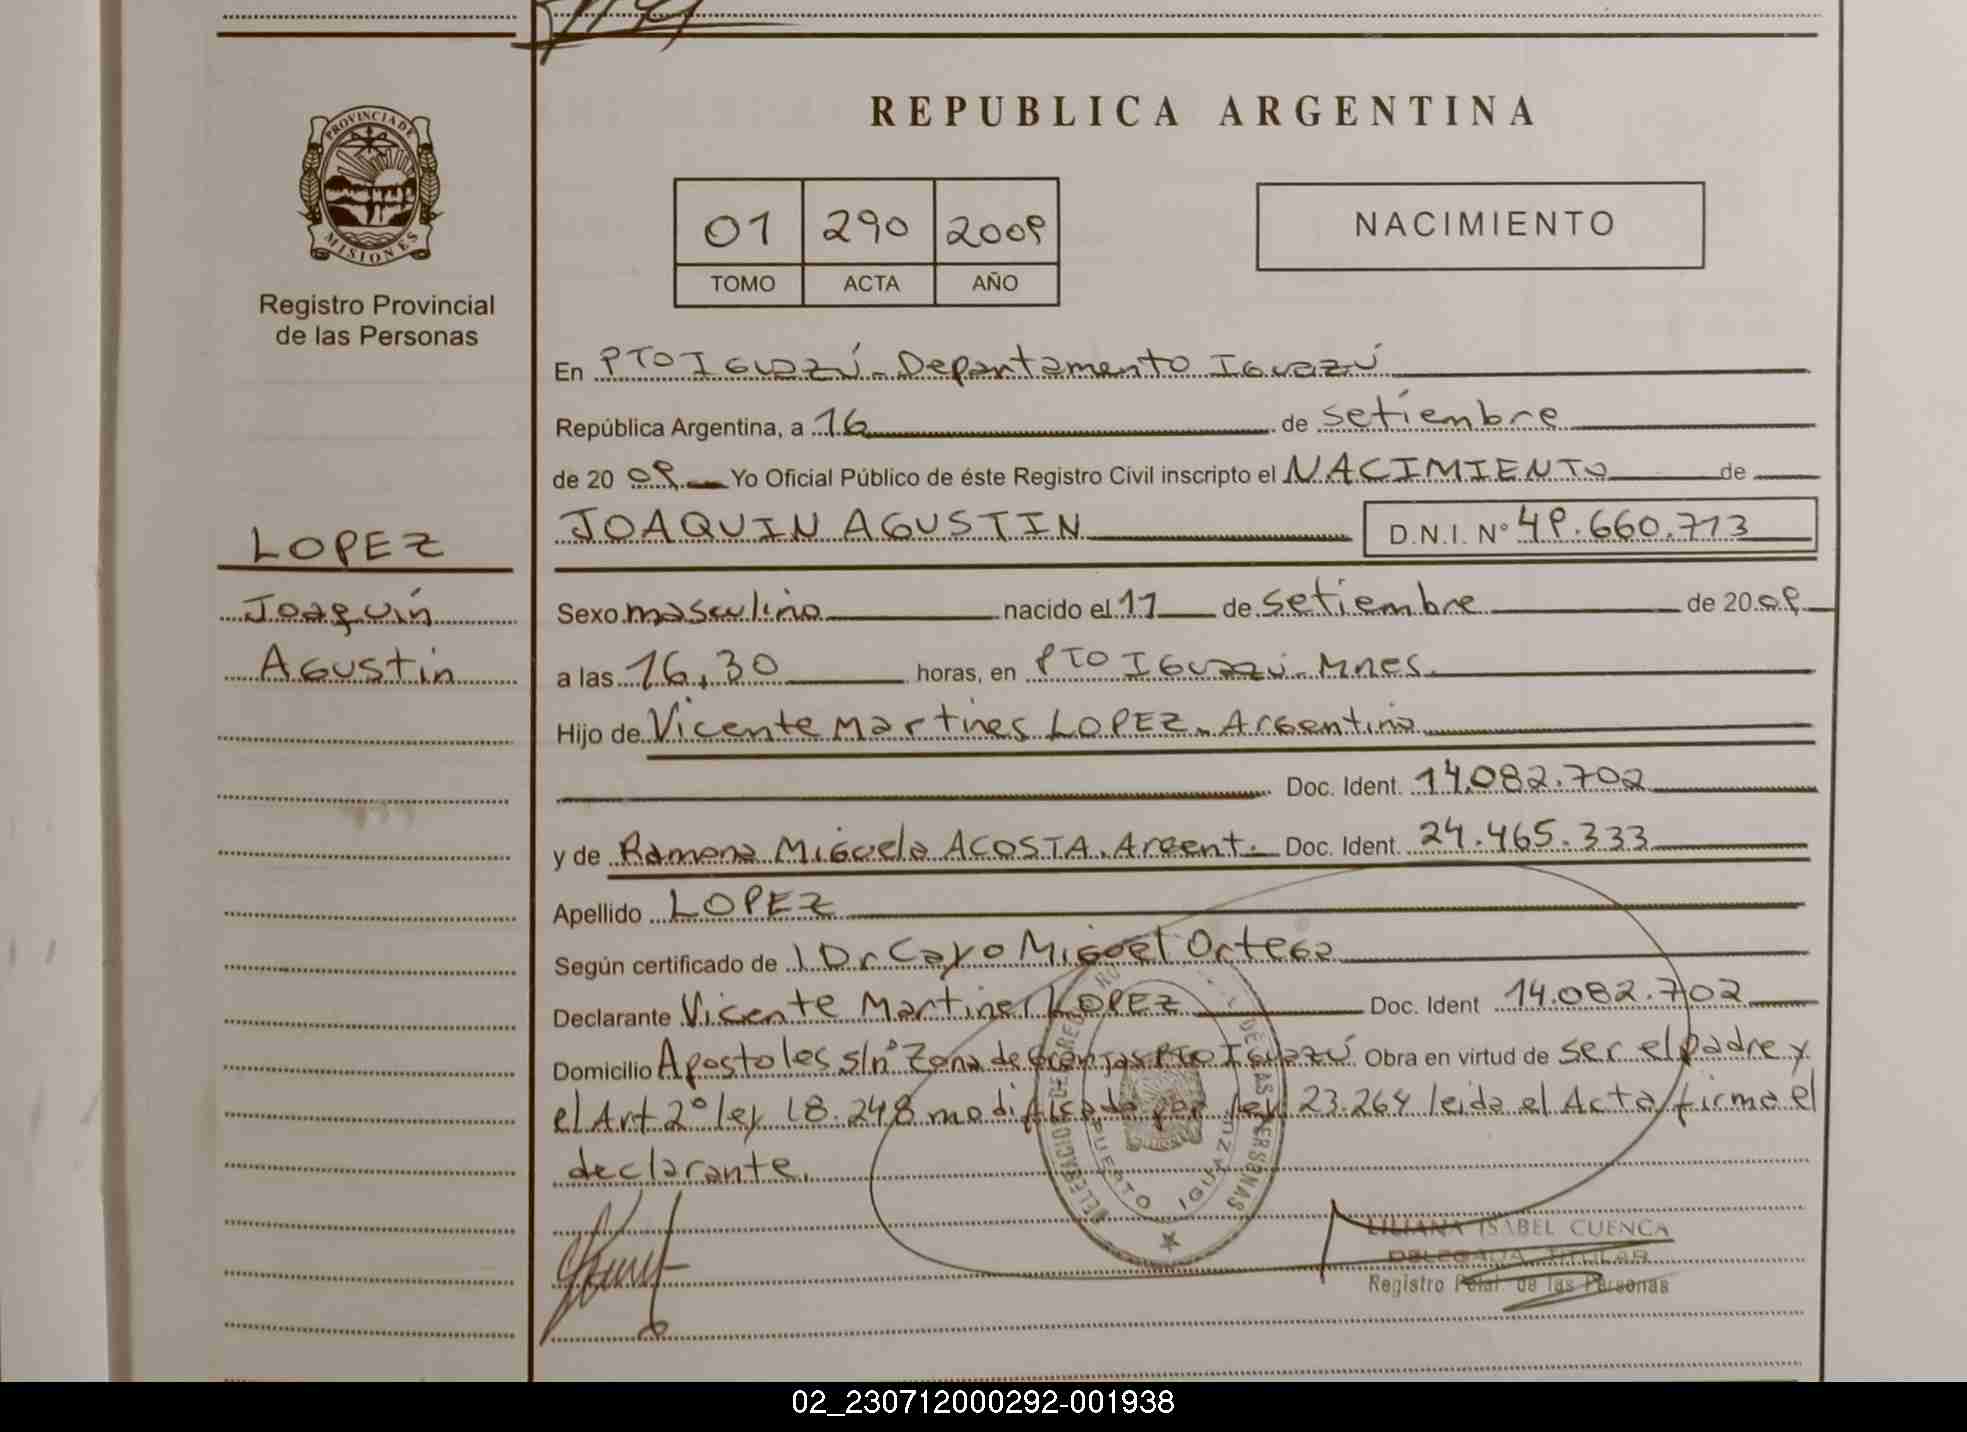 REPUBLICA ARGENTINA
PROVINCIA DE
MISIONES
Registro Provincial
de las Personas
01 290 2009
TOMO ACTA AÑO
NACIMIENTO
En PTO IGUAZÚ - Departamento IGUAZÚ
República Argentina, a 16 de setiembre
de 2009 Yo Oficial Público de éste Registro Civil inscripto el NACIMIENTO de
JOAQUIN AGUSTIN D.N.I. Nº 49.660.713
LOPEZ
Joaquín
Agustin
Sexo masculino nacido el 11 de setiembre de 2009
a las 16,30 horas, en PTO IGUAZÚ - Mnes.
Hijo de Vicente Martines LOPEZ - Argentino
Doc. Ident. 14.082.702
y de Ramona Miguela ACOSTA. Argent. Doc. Ident. 24.465.333
Apellido LOPEZ
Según certificado de Dr Cayo Miguel Ortega
Declarante Vicente Martines LOPEZ Doc. Ident 14.082.702
Domicilio Apostoles s/nº Zona de Granjas PTO IGUAZÚ Obra en virtud de ser el padre y
el Art 2º ley 18.248 modificado por ley 23.264 leida el Acta firma el
declarante.
DE LAS PERSONAS
PUERTO IGUAZU
LILIANA ISABEL CUENCA
DELEGADA TITULAR
Registro Pcial. de las Personas
02_230712000292-001938